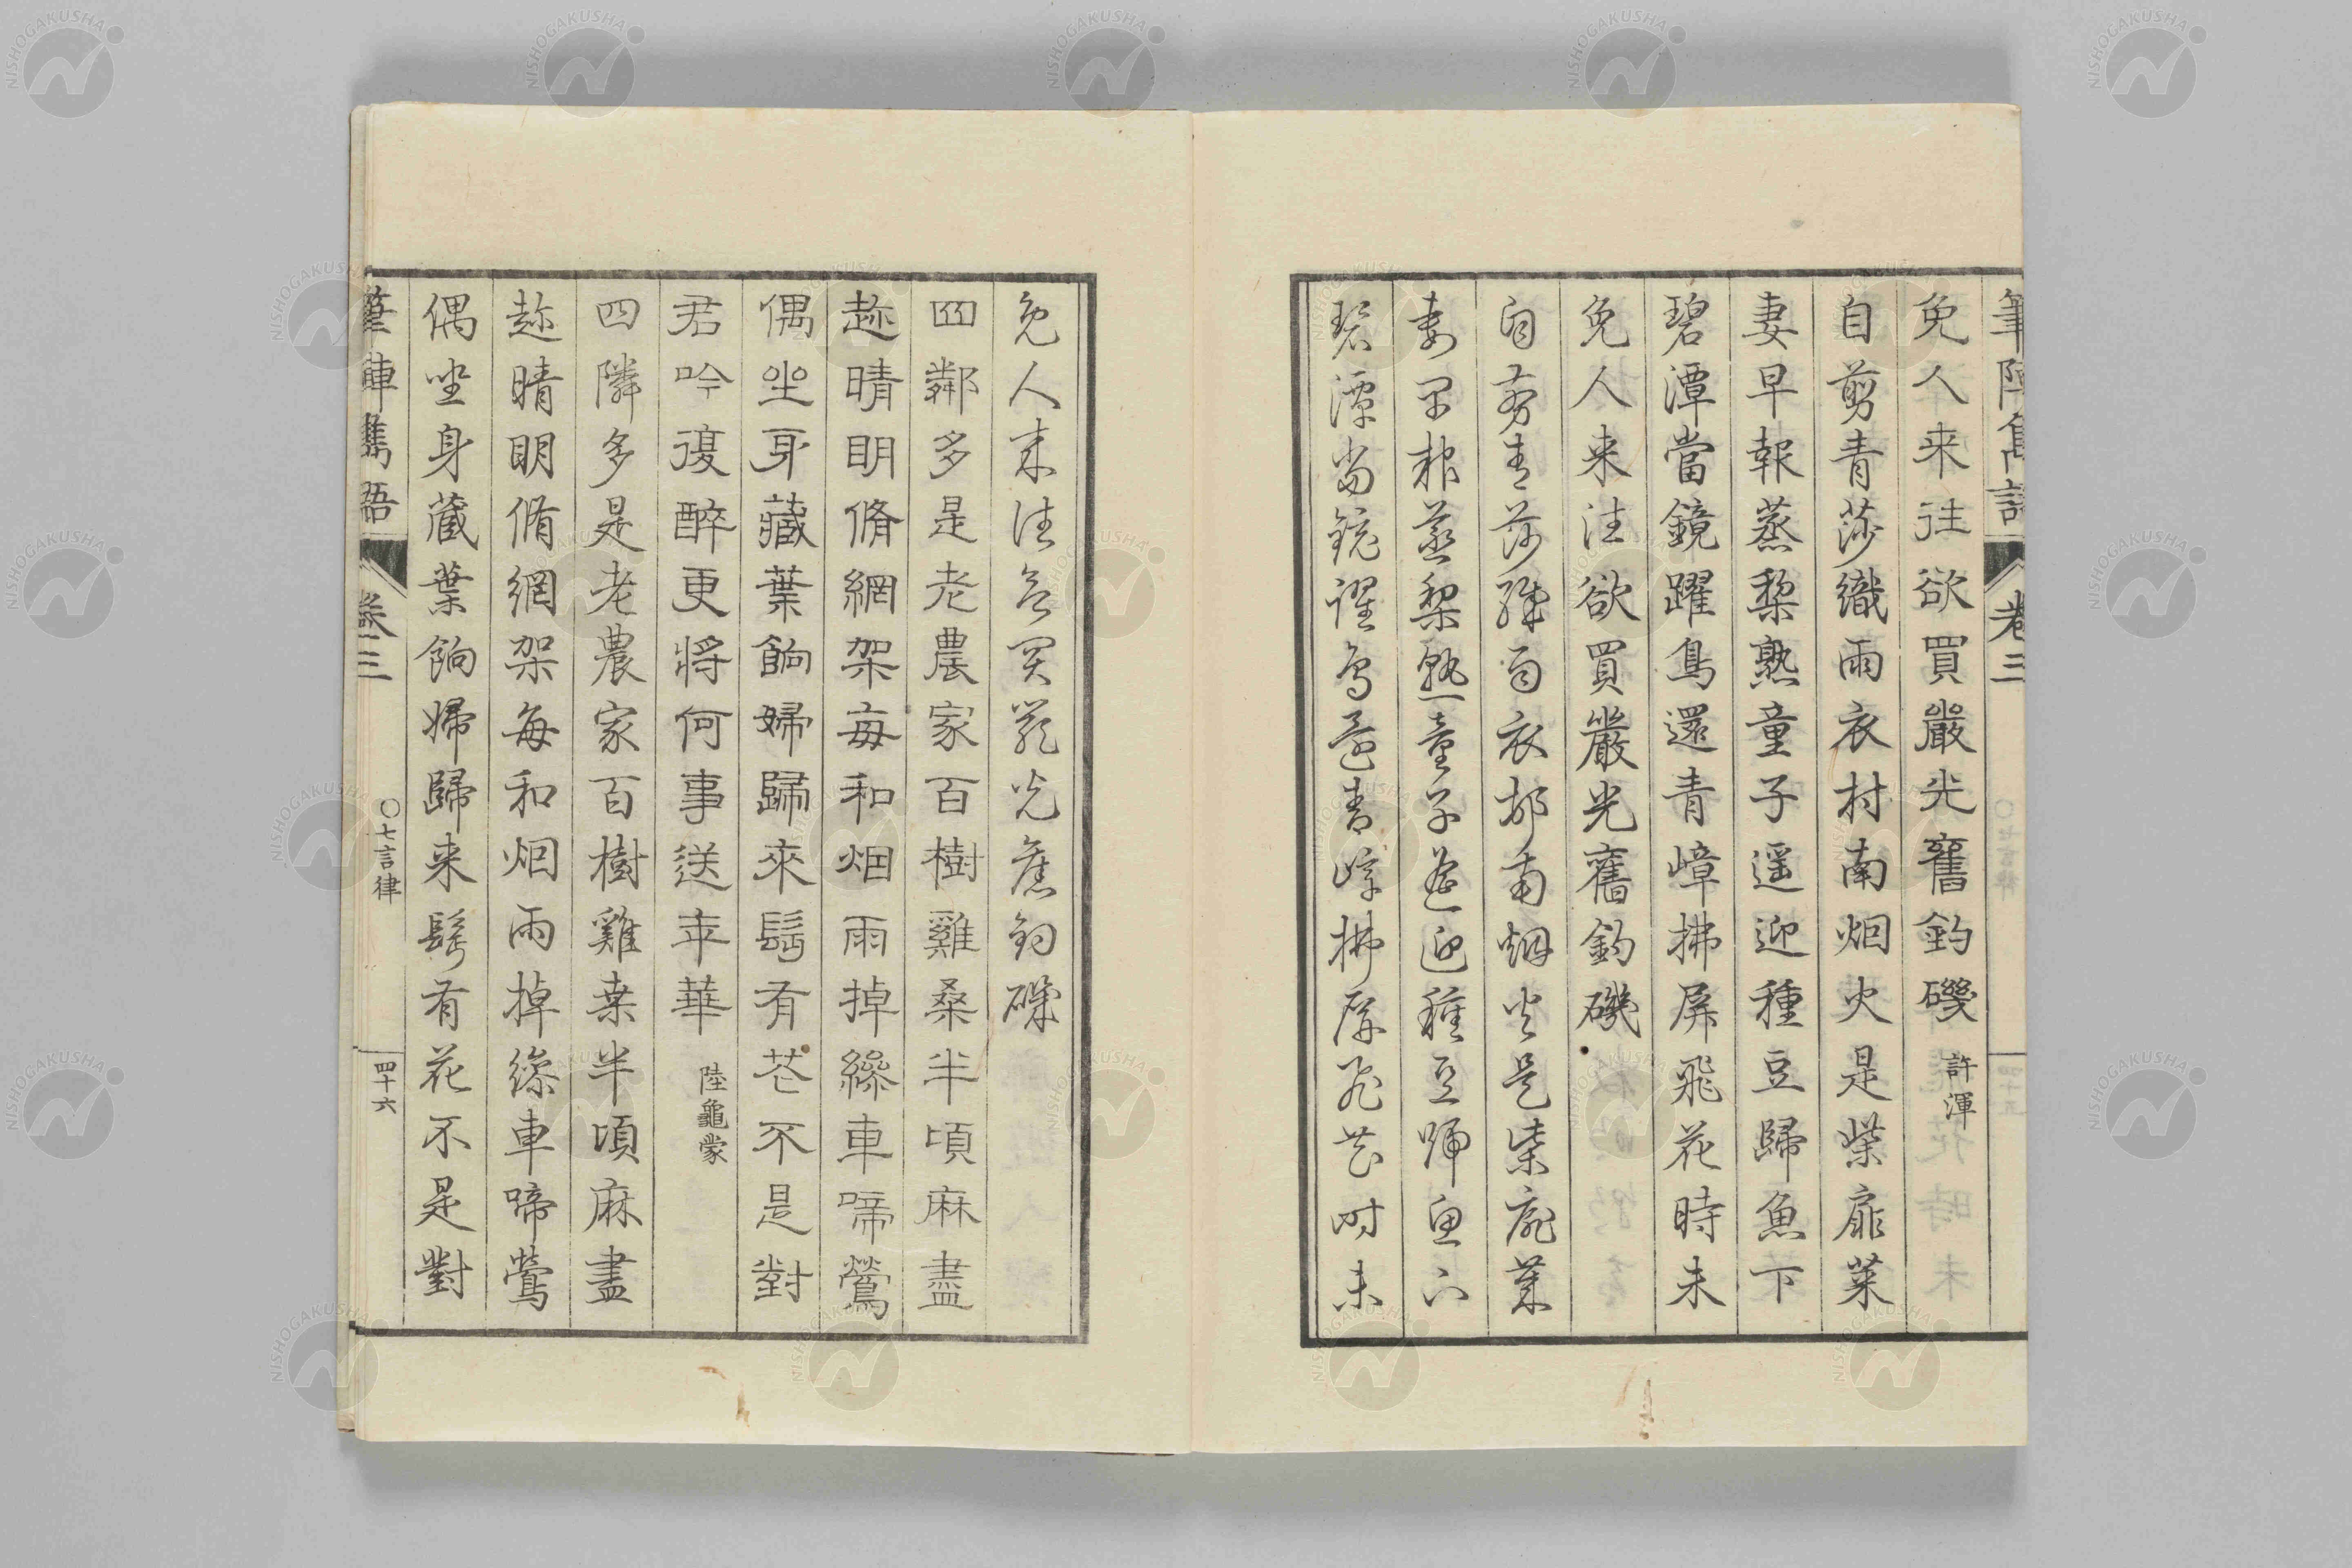 筆陣雋語 卷三
免人来往欲買嚴光舊釣磯 許渾
自剪青莎織雨衣村南烟火是柴扉菜
妻早報蒸梨熟童子遥迎種豆歸魚下
碧潭當鏡躍鳥還青嶂拂屏飛花時未
免人来往欲買嚴光舊釣磯
自剪青莎織雨衣村南烟火是柴扉菜
妻早報蒸梨熟童子遥迎種豆歸魚下
碧潭當鏡躍鳥還青嶂拂屏飛花時未
免人来往欲買嚴光舊釣磯
四鄰多是老農家百樹雞桑半頃麻盡
趂晴明脩網架每和烟雨掉繰車啼鶯
偶坐身藏葉餉婦歸來鬂有花不是對
君吟復醉更將何事送年華 陸龜蒙
四隣多是老農家百樹雞桑半頃麻盡
趂晴明脩網架每和烟雨掉繰車啼鶯
偶坐身藏葉餉婦歸来鬂有花不是對
筆陣雋語 卷三 〇七言律 四十六
NISHOGAKUSHA